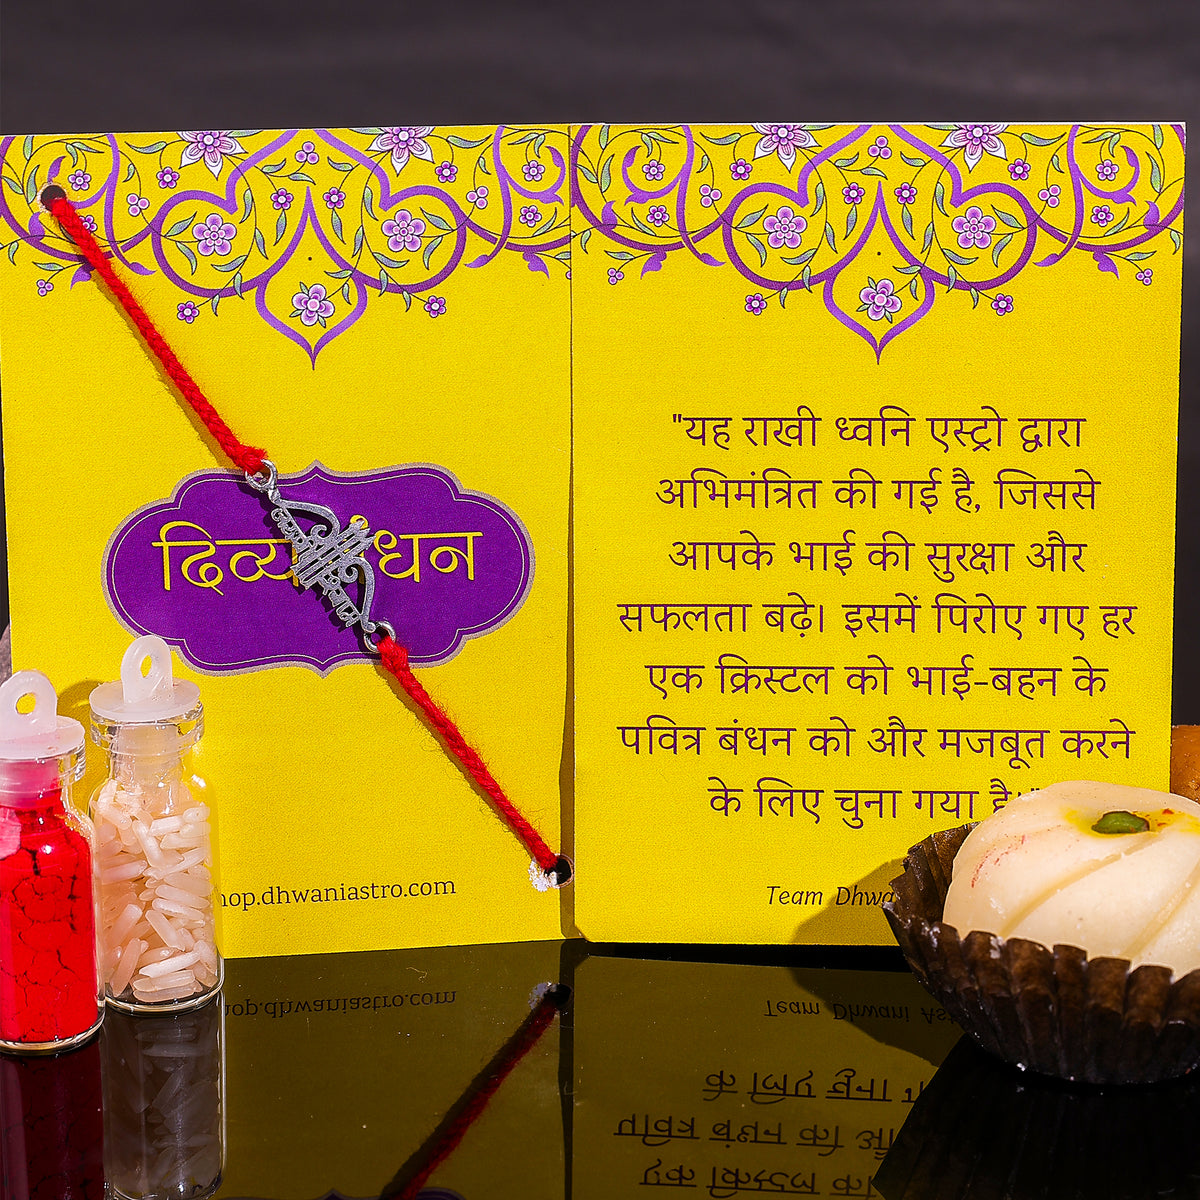 दिव्य
shop.dhwaniastro.com
"यह राखी ध्वनि एस्ट्रो द्वारा
अभिमंत्रित की गई है, जिससे
आपके भाई की सुरक्षा और
सफलता बढ़े। इसमें पिरोए गए हर
एक क्रिस्टल को भाई-बहन के
पवित्र बंधन को और मजबूत करने
के लिए चुना गया है।"
Team Dhwani